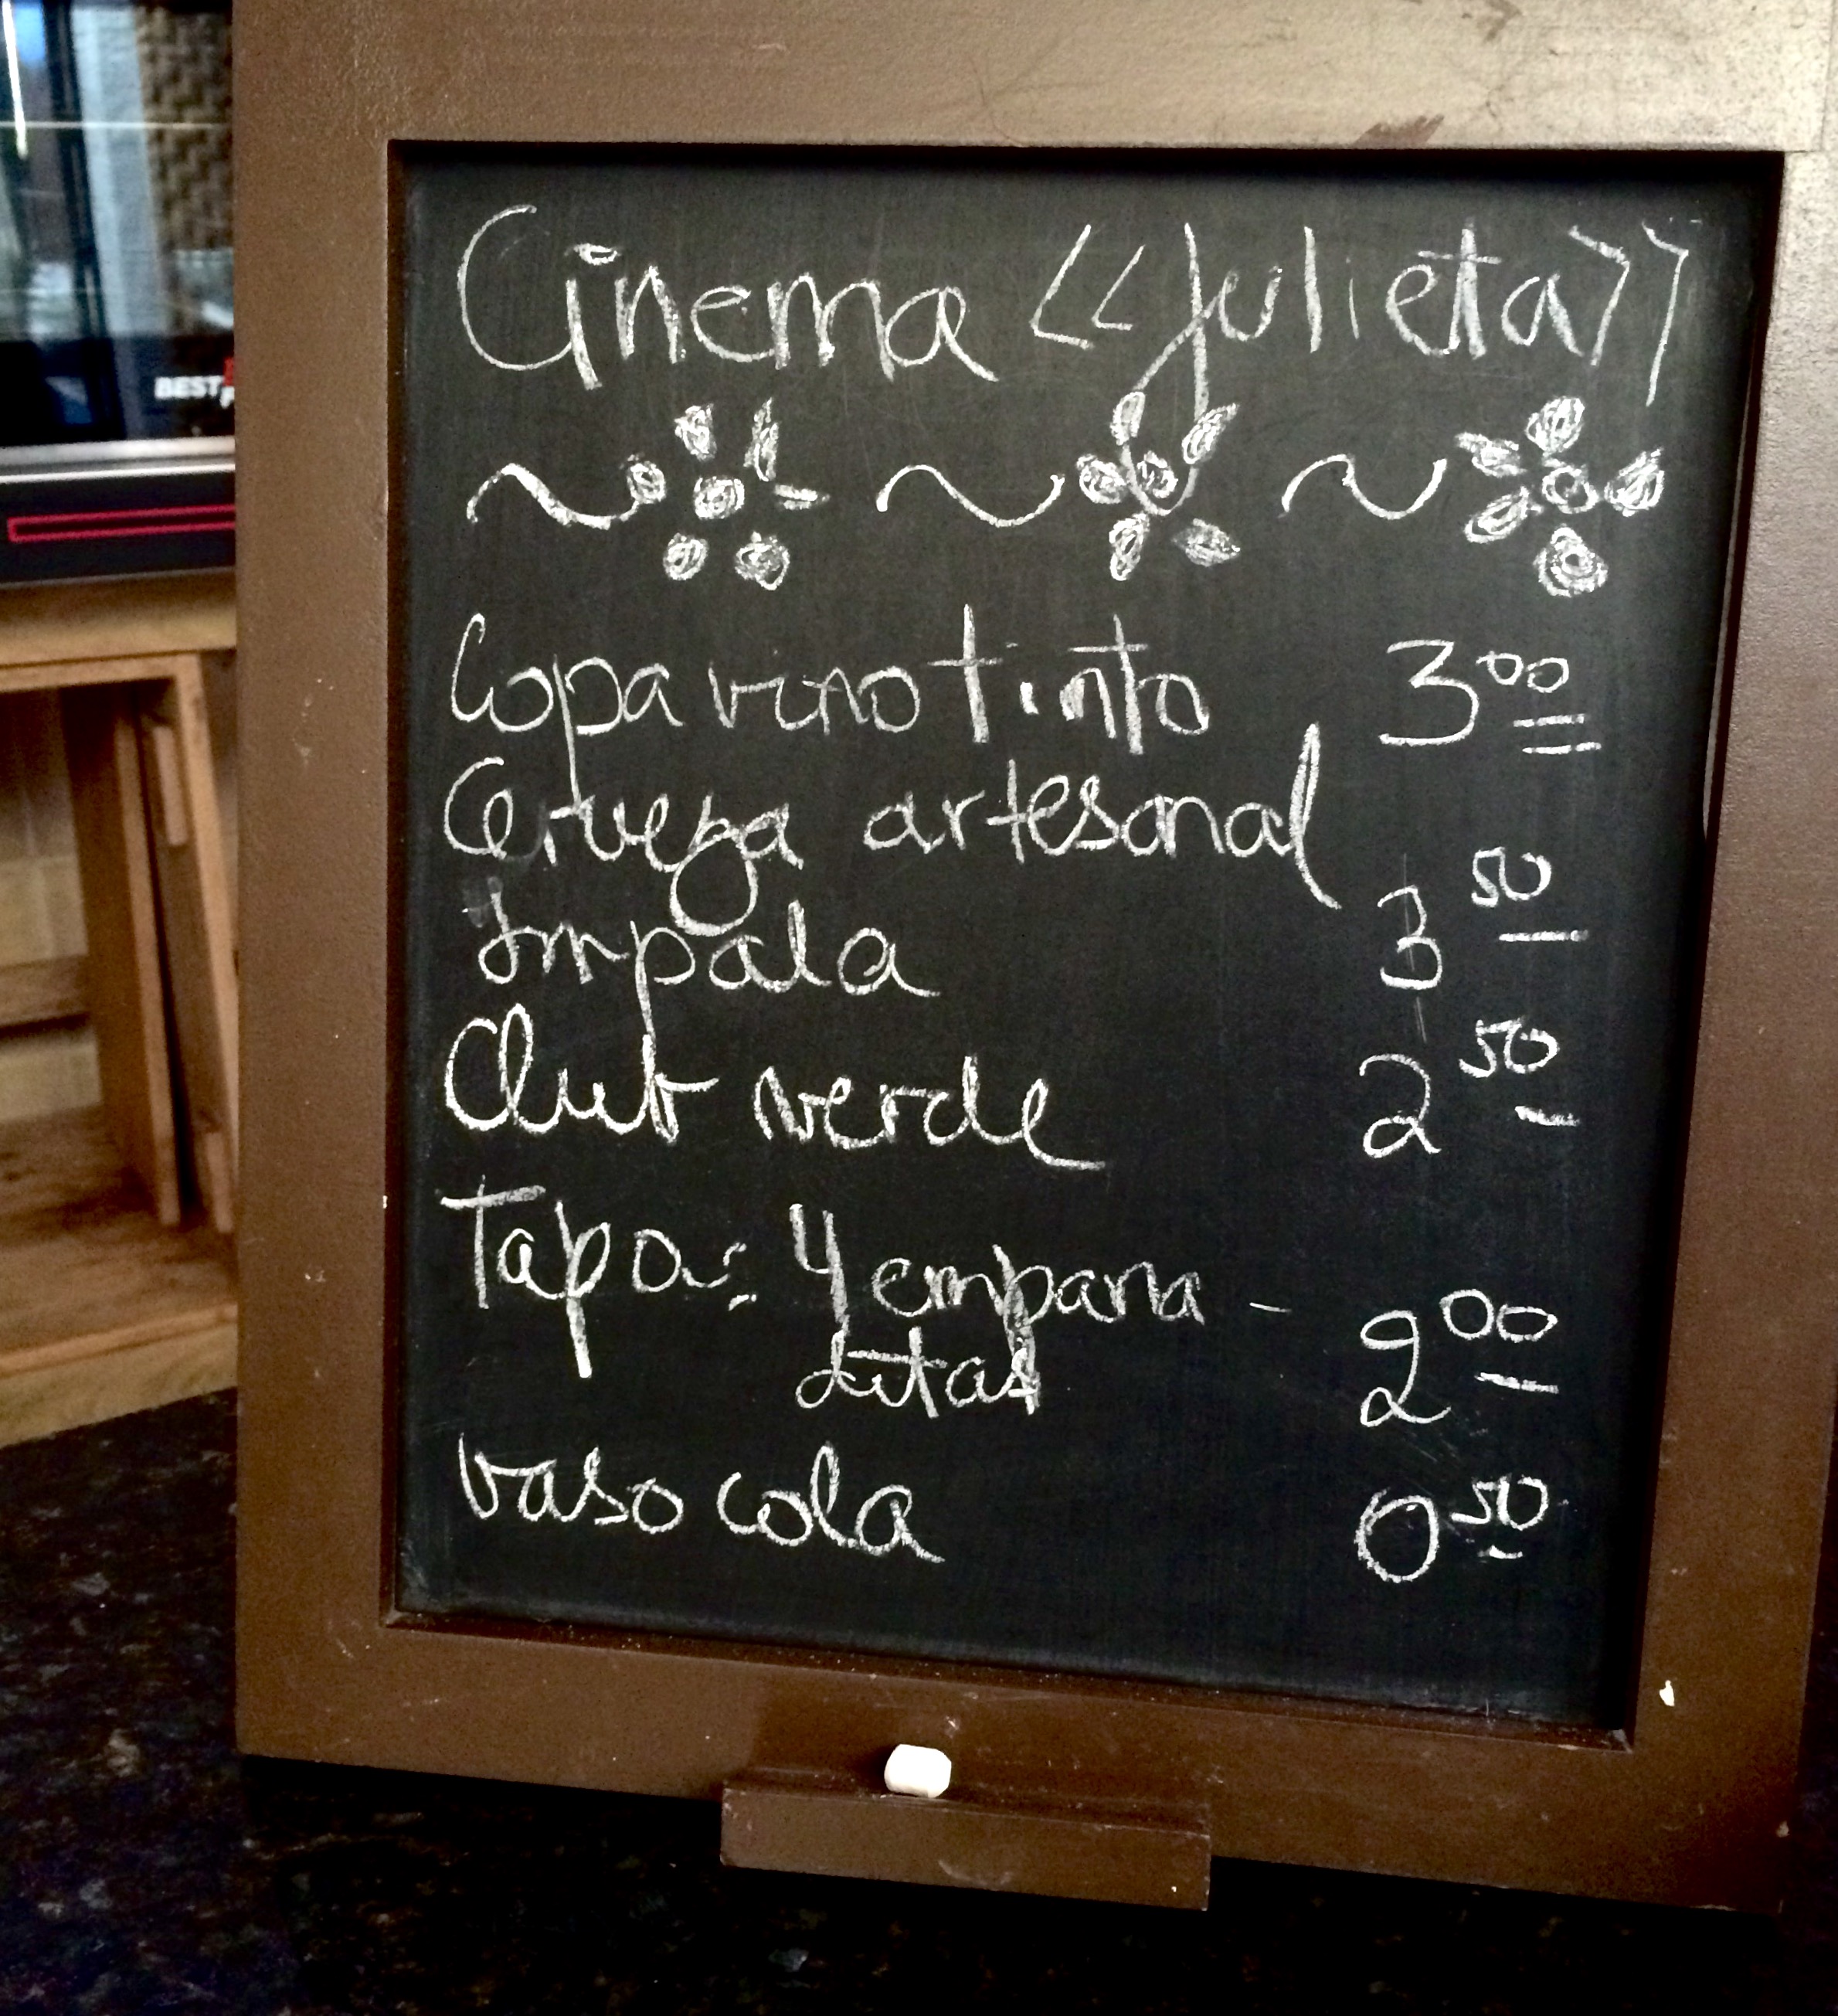 Cinema <<Julieta>>
Copa vino tinto 3 00
Cerveza artesanal
Impala 3 50
Club verde 2 50
Tapa: 4 empana -
ditas 2 00
vaso cola 0 50
BEST